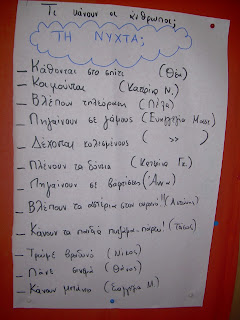 Τι κάνουν οι άνθρωποι;
ΤΗ ΝΥΧΤΑ;
— Κάθονται στο σπίτι (Θέκ)
— Κοιμούνται (Κατερίνα Ν.)
— Βλέπουν τηλεόραση (Πέγκυ)
— Πηγαίνουν σε γάμους (Ευαγγελία Μαστ.)
— Δέχονται καλεσμένους ( >> )
— Πλένουν τα δόντια (Κατερίνα Γκ.)
— Πηγαίνουν σε βαφτίσεις (Άννα)
— Βλέπουν τα αστέρια στον ουρανό!! (Αντώνης)
— Κάνουν τα παιδιά πυζάμα-πάρτυ! (Τάσος)
— Τρώμε βραδυνό (Νίκος)
— Πάνε σινεμά (Θάνος)
— Κάνουν μπάνιο (Ευαγγελία Μ)